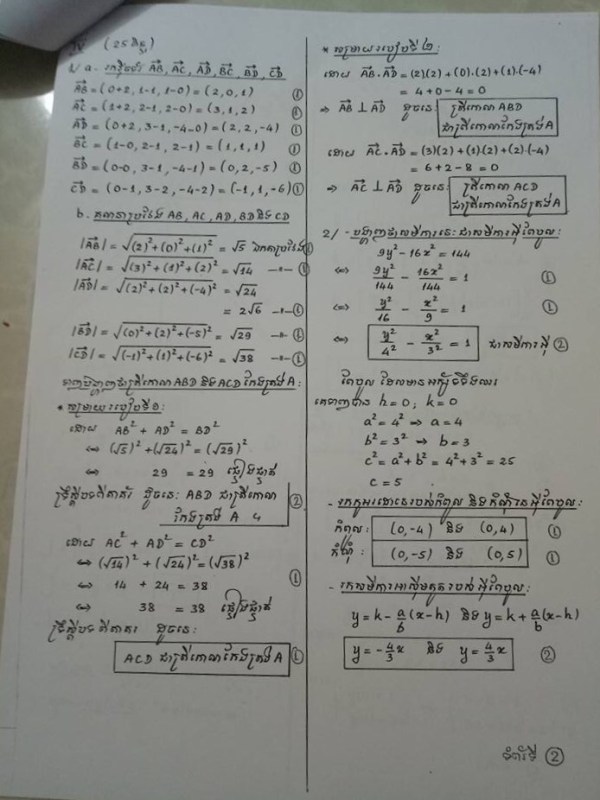 IV (25 ពិន្ទុ)
1/ a - រកវ៉ិចទ័រ AB, AC, AD, BC, BD, CD
AB = (0+2, 1-1, 1-0) = (2, 0, 1) ①
AC = (1+2, 2-1, 2-0) = (3, 1, 2) ①
AD = (0+2, 3-1, -4-0) = (2, 2, -4) ①
BC = (1-0, 2-1, 2-1) = (1, 1, 1) ①
BD = (0-0, 3-1, -4-1) = (0, 2, -5) ①
CD = (0-1, 3-2, -4-2) = (-1, 1, -6) ①
b. គណនាប្រវែង AB, AC, AD, BD និង CD
|AB| = √(2)²+(0)²+(1)² = √5 ឯកតាប្រវែង ①
|AC| = √(3)²+(1)²+(2)² = √14 —"— ①
|AD| = √(2)²+(2)²+(-4)² = √24
= 2√6 —"— ①
|BD| = √(0)²+(2)²+(-5)² = √29 —"— ①
|CD| = √(-1)²+(1)²+(-6)² = √38 —"— ①
ទាញបង្ហាញថាត្រីកោណ ABD និង ACD កែងត្រង់ A:
* សម្រាយ: របៀបទី១:
ដោយ AB² + AD² = BD²
⇔ (√5)² + (√24)² = (√29)²
⇔ 29 = 29 ផ្ទៀងផ្ទាត់
ទ្រឹស្តីបទពីតាគ័រ ដូចនេះ: ABD ជាត្រីកោណ
កែងត្រង់ A ②
ដោយ AC² + AD² = CD²
⇔ (√14)² + (√24)² = (√38)²
⇔ 14 + 24 = 38 ①
⇔ 38 = 38 ផ្ទៀងផ្ទាត់
ទ្រឹស្តីបទ ពីតាគ័រ ដូចនេះ:
ACD ជាត្រីកោណកែងត្រង់ A ①
* សម្រាយ: របៀបទី២:
ដោយ AB.AD = (2)(2) + (0).(2) + (1).(-4)
= 4 + 0 - 4 = 0
⇒ AB ⊥ AD ដូចនេះ ត្រីកោណ ABD
ជាត្រីកោណកែងត្រង់ A
ដោយ AC.AD = (3)(2) + (1).(2) + (2).(-4)
= 6 + 2 - 8 = 0
⇒ AC ⊥ AD ដូចនេះ ត្រីកោណ ACD
ជាត្រីកោណកែងត្រង់ A
2/ - បង្ហាញថាសមីការនេះជាសមីការអ៊ីពែបូល:
9y² - 16x² = 144
⇔ 9y²/144 - 16x²/144 = 1 ①
⇔ y²/16 - x²/9 = 1 ①
⇔ y²/4² - x²/3² = 1 ជាសមីការអ៊ី ②
ពែបូល ដែលមានអ័ក្សទទឹងឈរ
គេទាញបាន h = 0; k = 0
a² = 4² ⇒ a = 4
b² = 3² ⇒ b = 3
c² = a² + b² = 4² + 3² = 25
c = 5
- រកកូអរដោនេរបស់កំពូល និងកំណុំនៃអ៊ីពែបូល:
កំពូល: (0, -4) និង (0, 4) ①
កំណុំ: (0, -5) និង (0, 5) ①
- រកសមីការអាស៊ីមតូតរបស់ អ៊ីពែបូល:
y = k - a/b (x-h) និង y = k + a/b (x-h)
y = -4/3 x និង y = 4/3 x ②
ទំព័រទី ②